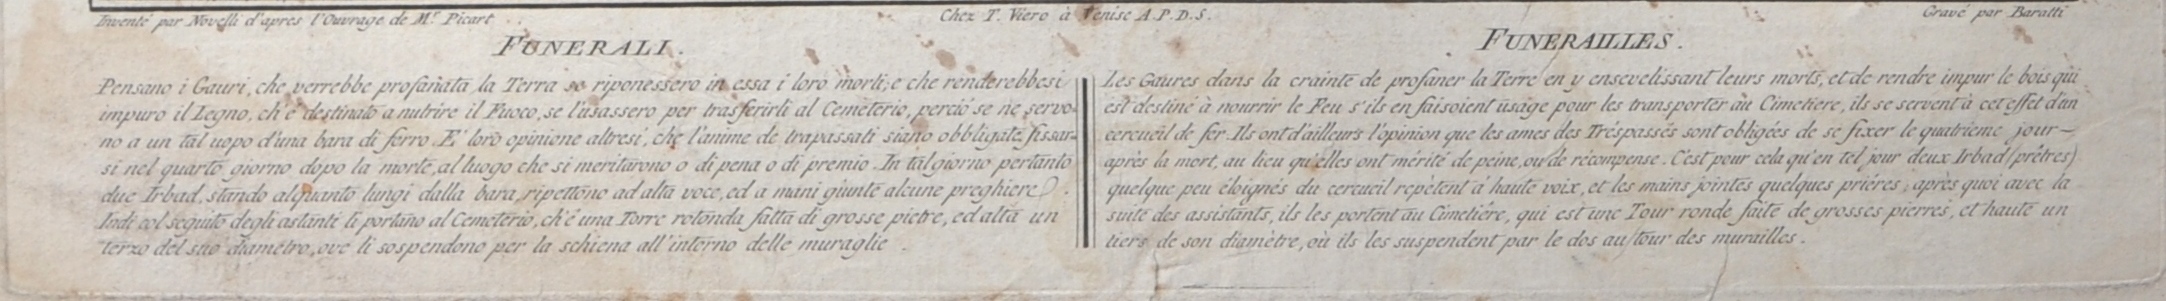 Inventé par Novelli d'apres l'Ouvrage de Mr. Picart
Chez T. Viero à Venise A.P.D.S.
Gravé par Baratti
FUNERALI.
Pensano i Gauri, che verrebbe profanata la Terra se riponessero in essa i loro morti; e che renderebbesi
impuro il Legno, ch'è destinato a nutrire il Fuoco, se l'usassero per trasferirli al Cemeterio, perciò se ne servo-
no a un tal uopo d'una bara di ferro. E' loro opinione altresì, che l'anime de trapassati siano obbligate fissar-
si nel quarto giorno dopo la morte, al luogo che si meritarono o di pena o di premio. In tal giorno pertanto
due Irbad, stando alquanto lungi dalla bara, ripettono ad alta voce, ed a mani giunte alcune preghiere.
Indi col seguito degli astanti li portano al Cemeterio, ch'è una Torre rotonda fatta di grosse pietre, ed alta un
terzo del suo diametro, ove li sospendono per la schiena all'intorno delle muraglie.
FUNERAILLES.
Les Gaures dans la crainte de profaner la Terre en y ensevelissant leurs morts, et de rendre impur le bois qui
est destiné à nourrir le Feu s'ils en faisoient usage pour les transporter au Cimetiere, ils se servent à cet effet d'un
cercueil de fer. Ils ont d'ailleurs l'opinion que les ames des Tréspassés sont obligées de se fixer le quatrieme jour-
après la mort, au lieu qu'elles ont mérité de peine, ou de récompense. C'est pour cela qu'en tel jour deux Irbad (prêtres)
quelque peu éloignés du cercueil repètent à haute voix, et les mains jointes quelques priéres; après quoi avec la
suite des assistants, ils les portent au Cimetiére, qui est une Tour ronde faite de grosses pierres, et haute un
tiers de son diamètre, où ils les suspendent par le dos au tour des murailles.